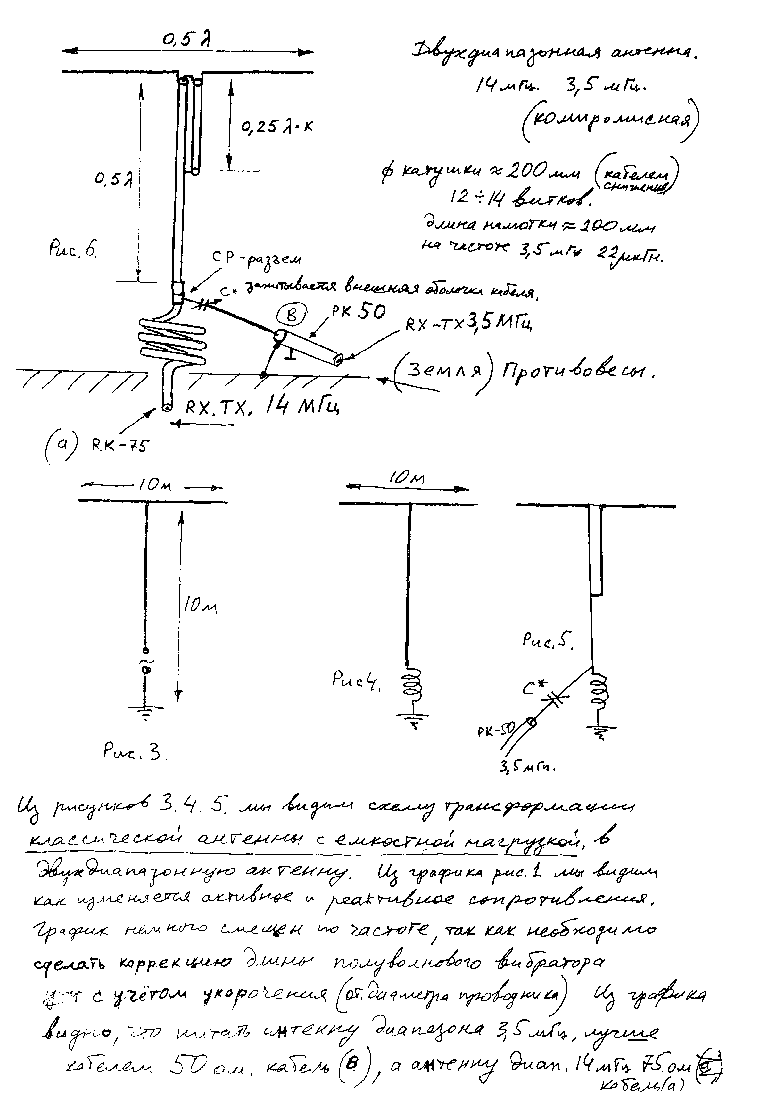 0,5λ
Двухдиапазонная антенна.
14 мгц. 3,5 мгц.
(компромисная)
0,25λ·к
0,5λ
ф катушки ≈ 200 мм (кабелем снижения)
12÷14 витков.
длина намотки ≈ 200 мм
на частоте 3,5 мгц 22 мкгн.
Рис. 6.
СР-разъем
C* запитывается внешняя оболочка кабеля.
В
РК 50
RX-TX 3,5 МГц
(Земля) Противовесы.
RX. TX. 14 МГц
(а) RK-75
10м
10м
10м
Рис. 3.
Рис 4.
Рис. 5.
C*
РК-50
3,5 мгц.
Из рисунков 3. 4. 5. мы видим схему трансформации
классической антенны с емкостной нагрузкой, в
двухдиапазонную антенну. Из графика рис. 1 мы видим
как изменяется активное и реактивное сопротивления.
График немного смещен по частоте, так как необходимо
сделать коррекцию длины полуволнового вибратора
с учётом укорочения (от диаметра проводника) Из графика
видно, что питать антенну диапазона 3,5 мгц, лучше
кабелем 50 ом. кабель (в), а антенну диап. 14 мгц 75 ом
кабель (а)